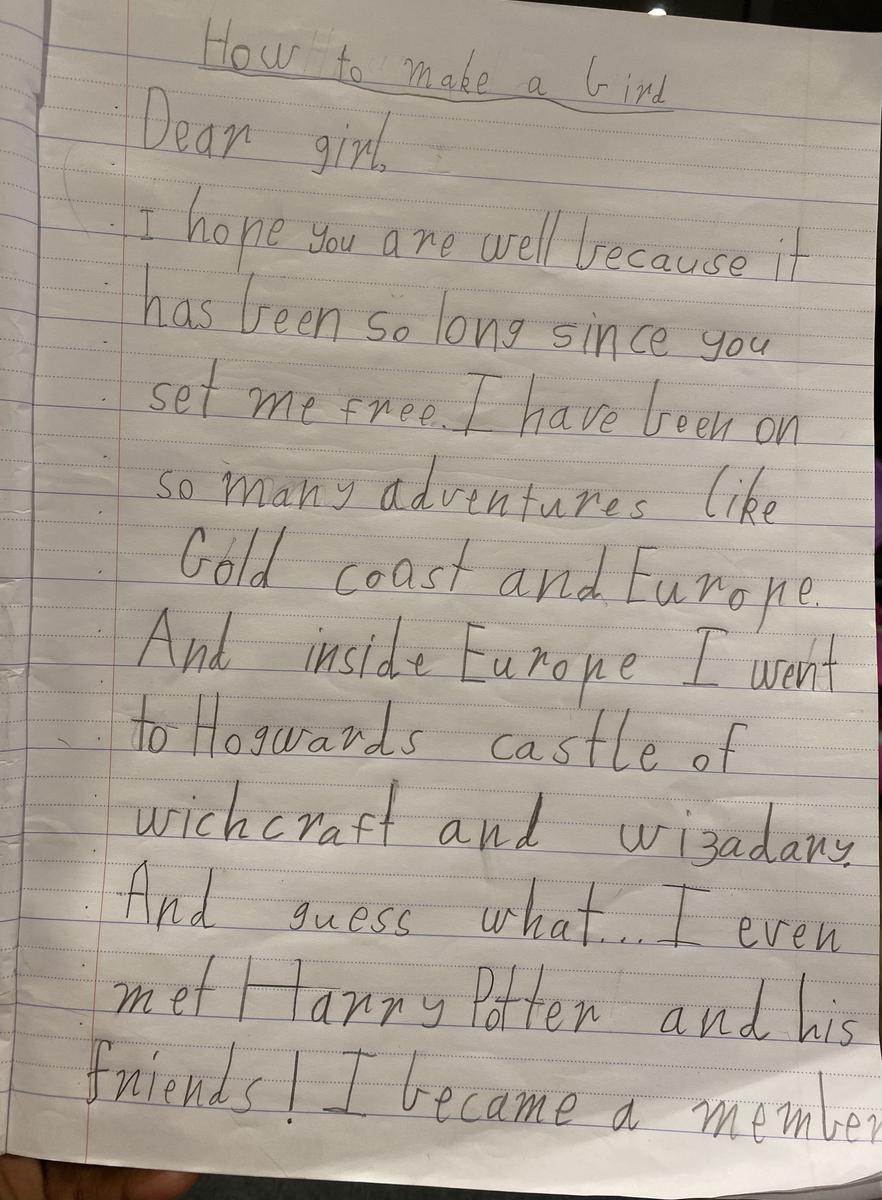 How to make a bird
Dear girl,
I hope you are well because it
has been so long since you
set me free. I have been on
so many adventures like
Gold coast and Europe.
And inside Europe I went
to Hogwards castle of
wichcraft and wizadary.
And guess what... I even
met Harry Potter and his
friends! I became a member